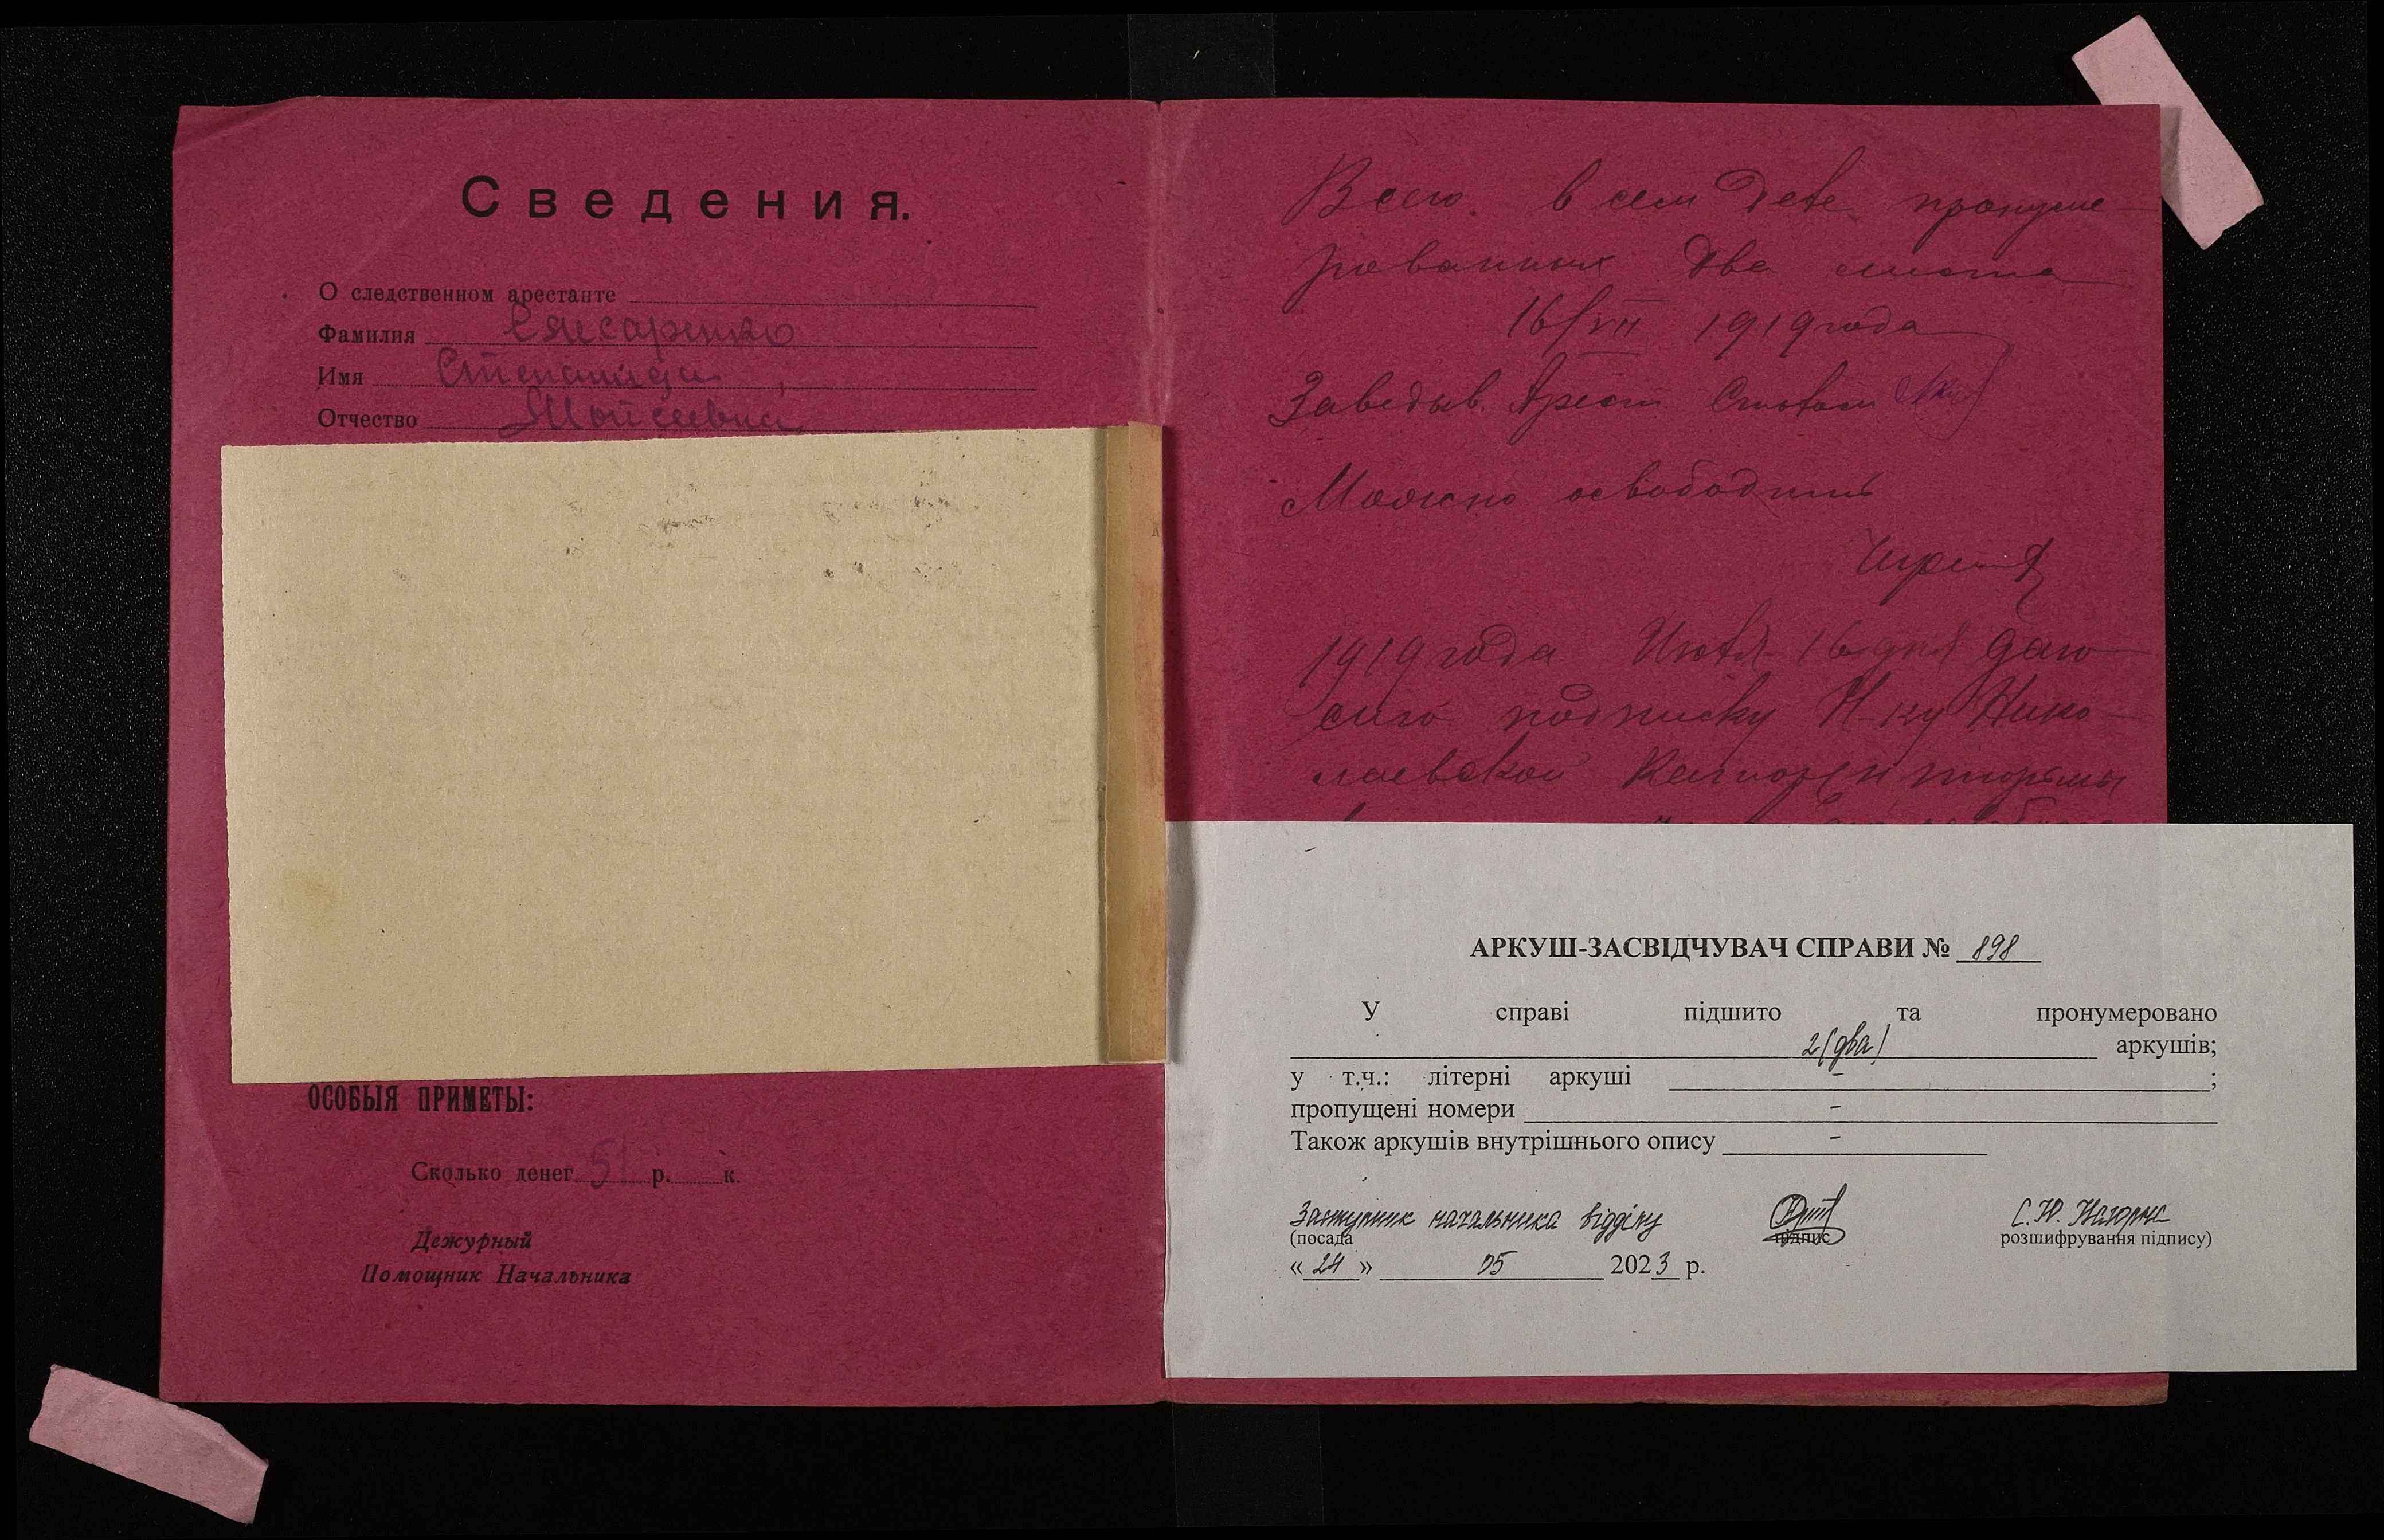 Сведения.
О следственном арестанте
Фамилия
Имя Степанида
Отчество Мойсеевна
ОСОБЫЯ ПРИМЕТЫ:
Сколько денег 51 р. к.
Дежурный
Помощник Начальника
Всего в сем деле пронуме-
рованных два листа
16/VII 1919 года
Заведыв. Арест. Столом
Можно освободить
1919 года Июля 16 дня даю
сию подписку Н-ку Нико-
лаевской Каторжн тюрьмы
АРКУШ-ЗАСВІДЧУВАЧ СПРАВИ № 898
У справі підшито та пронумеровано
2 (два) аркушів;
у т.ч.: літерні аркуші - ;
пропущені номери -
Також аркушів внутрішнього опису -
Заступник начальника відділу С.Ю.
(посада підпис розшифрування підпису)
« 24 » 05 2023 р.